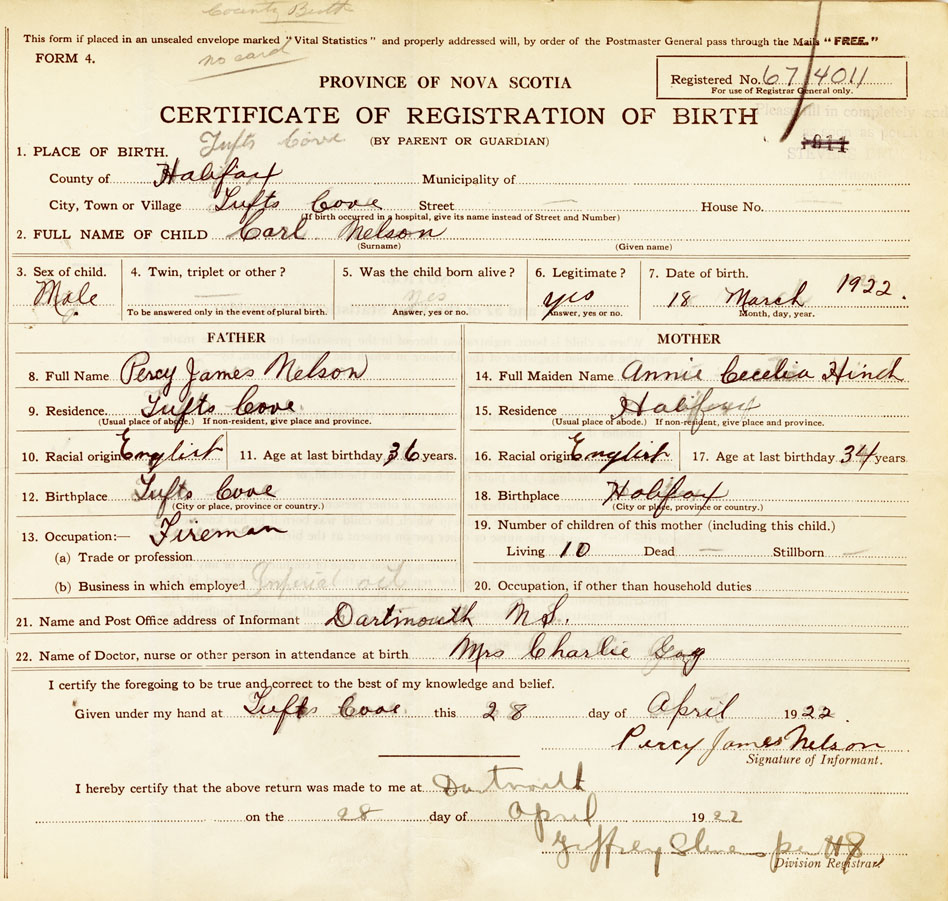 County Birth
This form if placed in an unsealed envelope marked "Vital Statistics" and properly addressed will, by order of the Postmaster General pass through the Mails "FREE."
FORM 4.
no card
PROVINCE OF NOVA SCOTIA
Registered No. 67 / 4011
For use of Registrar General only.
CERTIFICATE OF REGISTRATION OF BIRTH
Tufts Cove
(BY PARENT OR GUARDIAN)
1. PLACE OF BIRTH.
County of Halifax Municipality of
City, Town or Village Tufts Cove Street — House No.
(If birth occurred in a hospital, give its name instead of Street and Number)
2. FULL NAME OF CHILD Carl Nelson
(Surname) (Given name)
3. Sex of child. 4. Twin, triplet or other? 5. Was the child born alive? 6. Legitimate? 7. Date of birth.
Male — yes yes 18 March 1922.
To be answered only in the event of plural birth. Answer, yes or no. Answer, yes or no. Month, day, year.
FATHER MOTHER
8. Full Name Percy James Nelson 14. Full Maiden Name Annie Cecelia Hinch
9. Residence. Tufts Cove 15. Residence Halifax
(Usual place of abode.) If non-resident, give place and province. (Usual place of abode.) If non-resident, give place and province.
10. Racial origin English 11. Age at last birthday 36 years. 16. Racial origin English 17. Age at last birthday 34 years.
12. Birthplace Tufts Cove 18. Birthplace Halifax
(City or place, province or country.) (City or place, province or country.)
13. Occupation:— Fireman 19. Number of children of this mother (including this child.)
(a) Trade or profession Living 10 Dead — Stillborn —
(b) Business in which employed Imperial oil 20. Occupation, if other than household duties
21. Name and Post Office address of Informant Dartmouth N.S.
22. Name of Doctor, nurse or other person in attendance at birth Mrs Charlie Gay
I certify the foregoing to be true and correct to the best of my knowledge and belief.
Given under my hand at Tufts Cove this 28 day of April 1922.
Percy James Nelson
Signature of Informant.
I hereby certify that the above return was made to me at Dartmouth
on the 28 day of April 1922
per
Division Registrar.